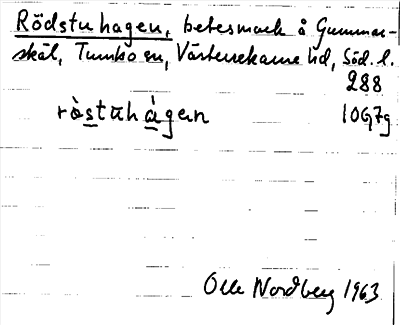 Rödstuhagen, betesmark å Gummar-
skäl, Tumbo sn, Västerrekarne hd, Söd. l.
288
rò̀stuhàgen 10G7g
Olle Nordberg 1963